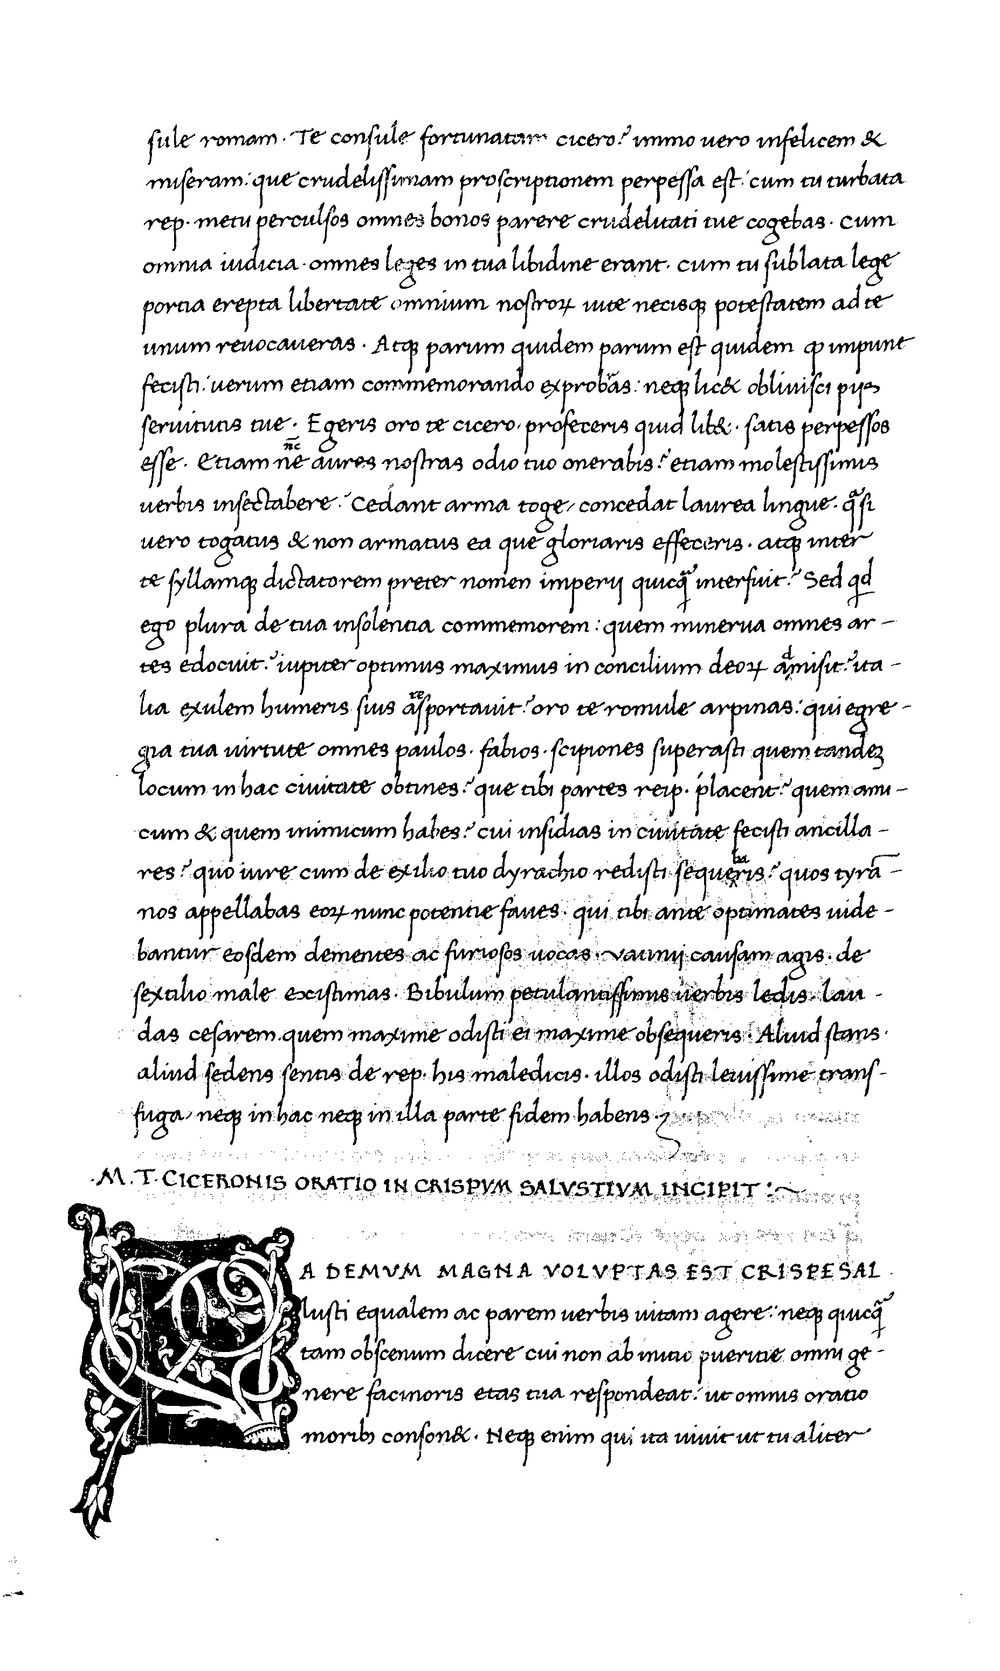 sule romam · Te consule fortunatam cicero? immo uero infelicem &
miseram: que crudelissimam proscriptionem perpessa est: cum tu turbata
rep· metu perculsos omnes bonos parere crudelitati tue cogebas · cum
omnia iudicia · omnes leges in tua libidine erant · cum tu sublata lege
portia erepta libertate omnium nostroꝝ uite necisqꝫ potestatem ad te
unum reuocaueras · Atqꝫ parum quidem parum est quidem ꝙ impune
fecisti: uerum etiam commemorando exprobas: neqꝫ lic& obliuisci pijs
seruitutis tue · Egeris oro te cicero · profeceris quid lib& · satis perpessos
esse · Etiam ne aures nostras odio tuo onerabis? etiam molestissimis
uerbis insectabere? Cedant arma toge / concedat laurea lingue · q̃si
uero togatus & non armatus ea que gloriaris effeceris · atqꝫ inter
te syllamqꝫ dictatorem preter nomen imperij quicq̃ interfuit? Sed qd
ego plura de tua insolentia commemorem: quem minerua omnes ar-
tes edocuit? iupiter optimus maximus in concilium deoꝝ admisit? ita-
lia exulem humeris suis asportauit? oro te romule arpinas: qui egre-
gia tua uirtute omnes paulos · fabios · scipiones superasti quem tandeꝫ
locum in hac ciuitate obtines? que tibi partes reip· placent? quem ami-
cum & quem inimicum habes? cui insidias in ciuitate fecisti ancilla-
res? quo iure cum de exilio tuo dyrachio redisti sequeris? quos tyrā-
nos appellabas eoꝝ nunc potentie faues · qui tibi ante optimates uide-
bantur eosdem dementes ac furiosos uocas · Vatinij causam agis · de
sextilio male existimas · Bibulum petulantissimis uerbis ledis · lau-
das cesarem · quem maxime odisti ei maxime obsequeris · Aliud stans ·
aliud sedens sentis de rep· his maledicis · illos odisti leuissime trans-
fuga / neqꝫ in hac neqꝫ in illa parte fidem habens ·
· M · T · CICERONIS ORATIO IN CRISPVM SALVSTIVM INCIPIT :~
EA DEMVM MAGNA VOLVPTAS EST CRISPE SAL
lusti equalem ac parem uerbis uitam agere: neqꝫ quicq̃
tam obscenum dicere cui non ab initio pueritie omni ge-
nere facinoris etas tua respondeat: ut omnis oratio
moribꝫ conson& · Neqꝫ enim qui ita uiuit ut tu aliter